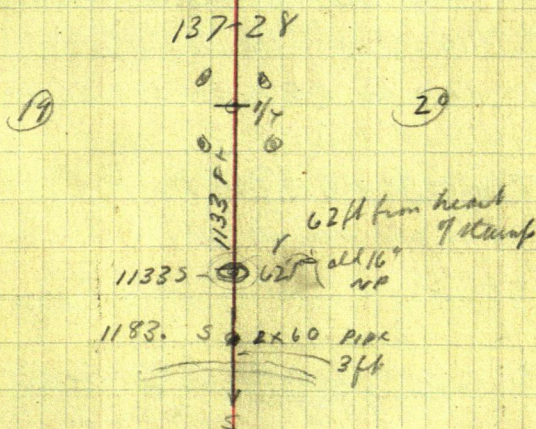 137-28
19
1/4
20
1133 Ft
62 ft from heart
of stump
1133 S 62 old 16"
NP
1183. S 2x60 PIPE
3 ft